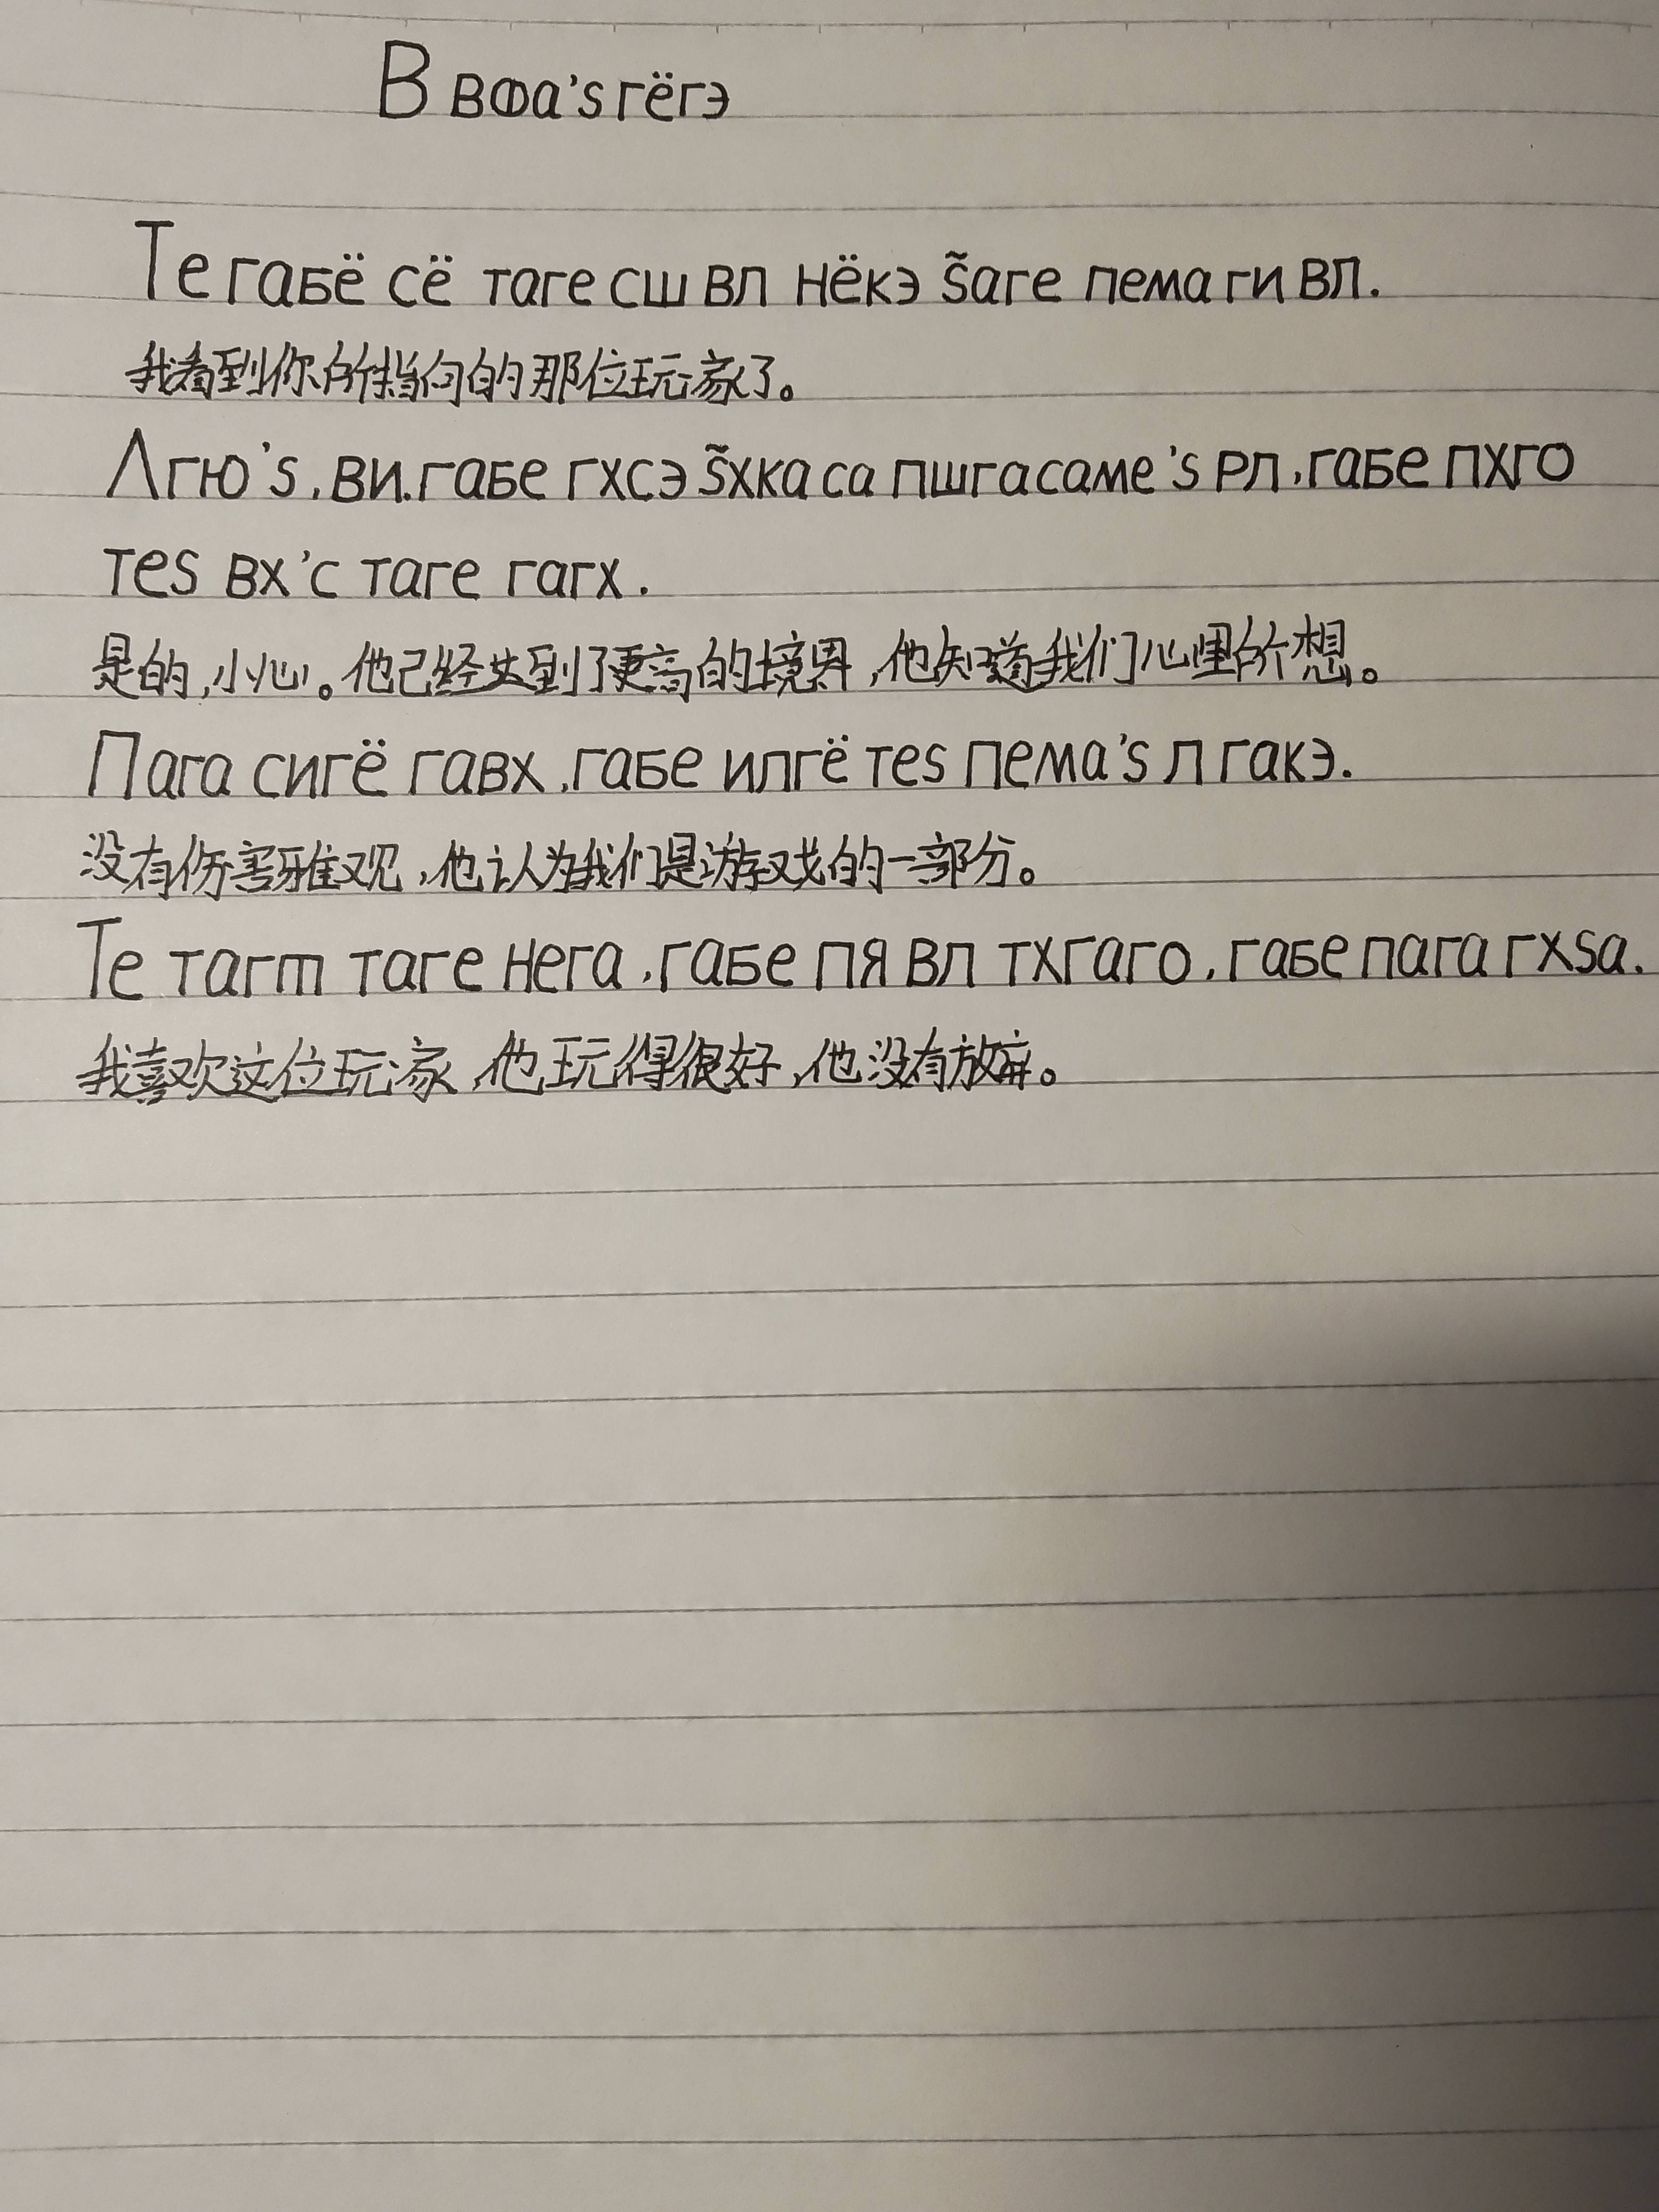 В вфа'ѕ гёгэ
Те габё сё таге сш вл нёкэ ѕ̃аге пема ги вл.
我看到你所指向的那位玩家了。
Лгю'ѕ, ви. габе гхсэ ѕ̃хка са пшга саме'ѕ рл, габе пхго
теѕ вх'с таге гагх.
是的,小心。他已经达到了更高的境界,他知道我们心里所想。
Пага сигё гавх, габе илгё теѕ пема'ѕ л гакэ.
没有伤害雅观,他认为我们是游戏的一部分。
Те тагт таге нега, габе пя вл тхгаго, габе пага гхѕа.
我喜欢这位玩家,他玩得很好,他没有放弃。